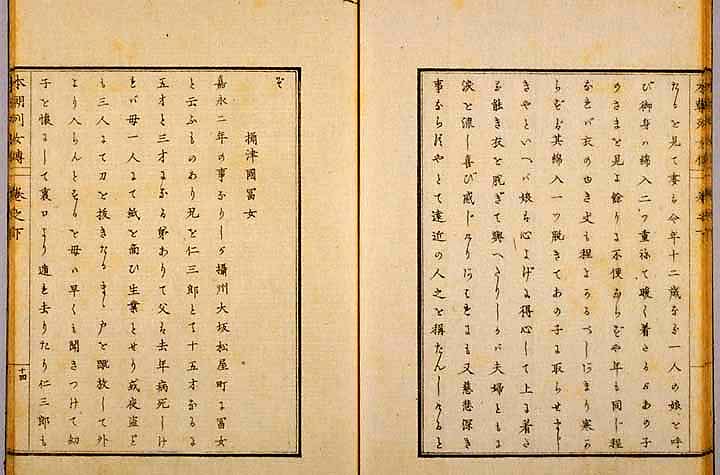 なるを見て妻も今年十二歳なる一人の娘を呼
び御身ハ綿入二ツ重ねて暖く着たるがあの子
のさまを見よ餘りに不便ならずや年も同じ程
なれバ衣のゆき丈も程よかるべしあまり寒か
らずバ其綿入一ツ脱ぎてあの子に取らせまじ
きやといへバ娘も心よげに得心して上に着た
る能き衣を脱ぎて與へたりしかバ夫婦ともに
涙を流し喜び感じけり又慈悲深き
事ならずやとて遠近の人之を稱たんしけると
ぞ
攝津國冨女
嘉永二年の事なりしが攝州大坂松屋町に冨女
と云ふものあり兄を仁三郎とて十五才なるに
五才と三才になる弟ありて父ハ去年病死しけ
れバ母一人にて紙を商ひ生業とせり或夜盗ど
も三人にて刀を抜きながら戸を蹴放して外
より入らんとするを母ハ早くも聞きつけて幼
子を懐にして裏口より逃れ去りたり仁三郎も
本朝列女傳 巻之下
十四